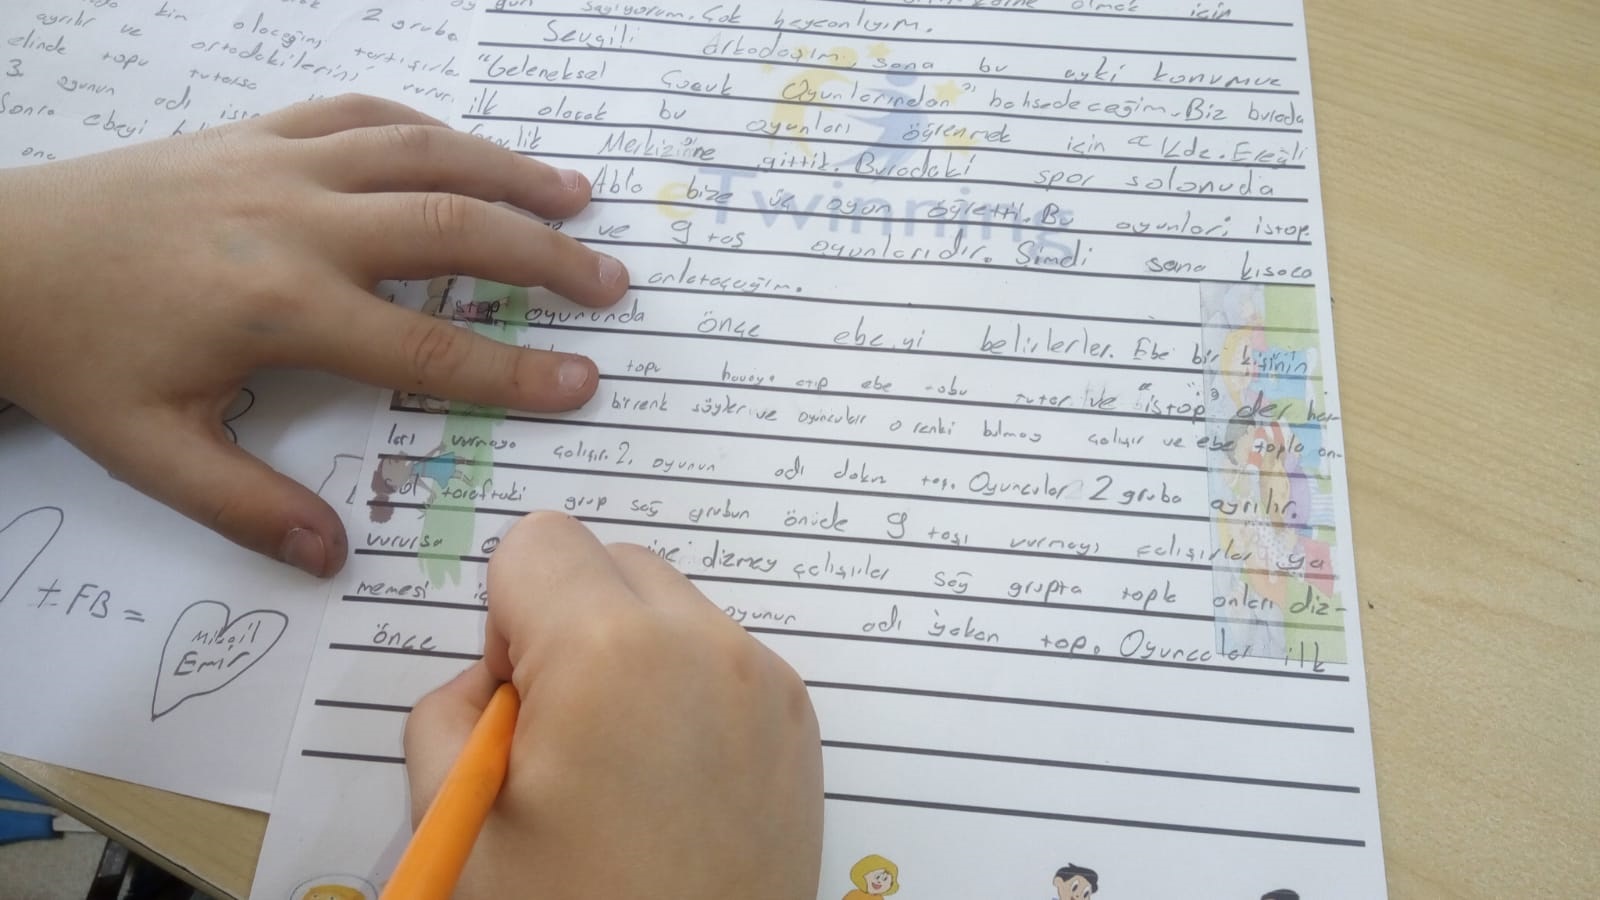 kin olacağını tartışırla
ayrılır ve ortadakilerini vurur.
elinde topu tutarsa
3. oyunun adı
Sonra ebeyi
2 gruba
± FB =
Emir
olmak için
gün sayıyorum. Çok heycanlıyım.
Sevgili arkadaşım, sana bu ayki konumuz
"Geleneksel Çocuk Oyunlarından" bahsedeceğim. Biz burada
ilk olarak bu oyunları öğrenmek için " Kdz. Ereğli
Merkizi'ne gittik. Buradaki spor salonuda
Abla bize üç oyun öğretti. Bu oyunları, istop
ve 9 taş oyunlarıdır. Şimdi sana kısaca
anlataçağım.
eTwinning
İstop oyununda önçe ebeyi belirlerler. Ebe bir kişinin
topu havaya atıp ebe tutar ve "istop" der her-
bir renk söyler ve oyuncular o renki bulmay çalışır ve ebe topla on-
ları vurmaya çalışır. 2. oyunun adı dokuz taş. Oyuncular 2 gruba ayrılır.
Sol taraftaki grup sağ grubun önüde 9 taşı vurmayı çalışırlar ya
vurursa dizmey çalışırlar sağ grupta topla onları diz-
memesi oyunun adı yakan top. Oyuncular ilk
önçe